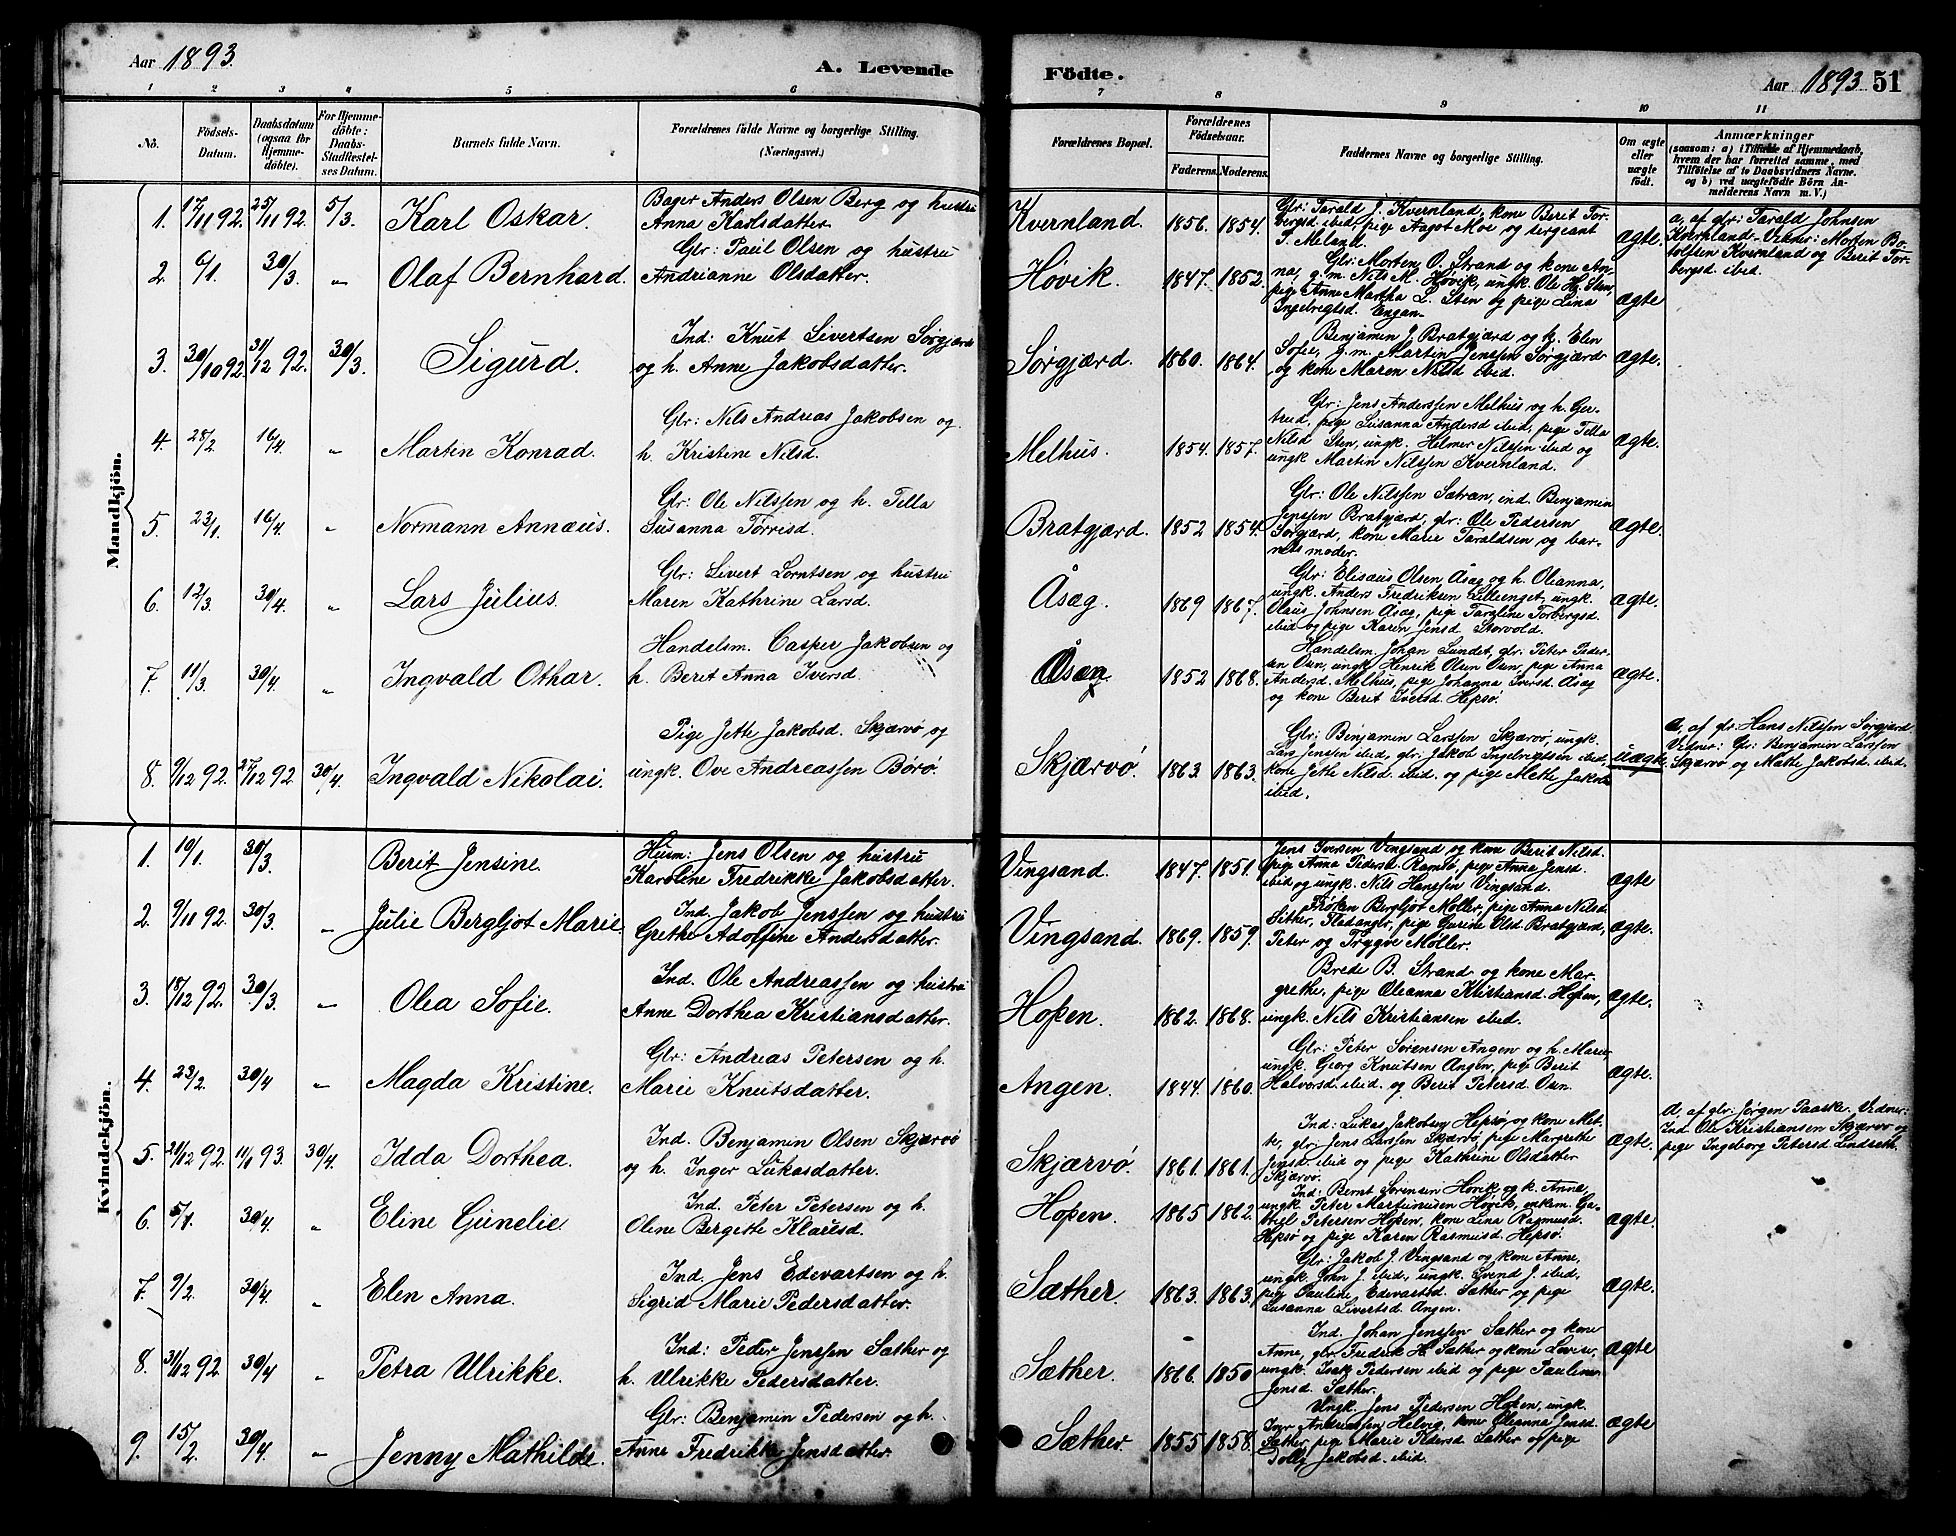 Aar 1893.
A. Levende
Födte.
Aar 1893 51
1 2 3 4 5 6 7 8 9 10 11
No.
Födsels-
Datum.
Daabsdatum
(ogsaa for
Hjemme-
döbte).
For Hjemme-
döbte:
Daabs-
Stadfæstel-
ses Datum.
Barnets fulde Navn.
Forældrenes fulde Navne og borgerlige Stilling.
(Næringsvei.)
Forældrenes Bopæl.
Forældrenes
Födselsaar.
Faderens. Moderens.
Faddernes Navne og borgerlige Stilling.
Om ægte
eller
uægte
födt.
Anmærkninger
(saasom: a) i Tilfælde af Hjemmedaab,
hvem der har forrettet samme, med
Tilföielse af to Daabsvidners Navne.
og b) ved uægtefödte Börn An-
melderens Navn m. V.)
Mandkjön.
1. 17/11 92. 25/11 92 5/3. Karl Oskar.
Bager Anders Olsen Berg og hustru
Anna Karlsdatter.
Kvernland. 1856. 1854.
Glr: Tarald J. Kvernland, kone Berit Tor-
bergsd. ibid, pige Aagot Moe og sergeant
P. Meland.
ægte.
a, af glr: Tarald Johnsen
Kvernland - Vidner: Morten Bo-
tolfsen Kvernland og Berit Tor-
bergsd. ibid.
2. 6/1 30/3. " Olaf Bernhard.
Glr: Paul Olsen og hustru
Andrianne Olsdatter.
Hövik. 1847. 1852.
Glr: Morten O. Strand og kone An-
na, g.m. Nils M. Hövik, ungk. Ole H. Sten,
pige Anne Martha L. Sten og pige Lina
Ingebregtsd. Engan.
ægte
3. 30/10 92. 31/12 92. 30/3. Sigurd.
Ind: Knut Sivertsen Sörgjærd
og h. Anne Jakobsdatter.
Sörgjærd. 1860. 1864.
Benjamin J. Bratgjærd og h. Elen
Sofie, g.m. Martin Jenssen Sörgjærd
og kone Maren Nilsd ibid.
ægte.
4. 28/2 16/4. " Martin Konrad.
Glr: Nils Andreas Jakobsen og
h. Kristine Nilsd.
Melhus. 1854. 1857.
Glr: Jens Anderssen Melhus og h. Ger-
trud, pige Susanna Andersd ibid, pige Tella
Nilsd Sten, ungk. Helmer Nilssen ibid og
ungk Martin Nilssen Kvernland.
ægte.
5. 23/1. 16/4. " Normann Annæus.
Glr: Ole Nilssen og h. Tella
Susanna Torrisd.
Bratgjærd. 1852 1854.
Glr: Ole Nilssen Sætran, ind. Benjamin
Jenssen Bratgjærd, glr: Ole Pedersen
Sörgjærd, kone Marie Taraldsen og bar-
nets moder.
ægte.
6. 12/3. 30/4. " Lars Julius.
Glr: Sivert Lorntsen og hustru
Maren Kathrine Larsd.
Åsæg. 1869 1867.
Glr: Elisæus Olsen Åsæg og h. Oleanna,
ungk. Anders Fredriksen Lilleenget, ungk.
Olaus Johnsen Åsæg, pige Taraline Torbergsd.
ibid og pige Karen Jensd. Storvold.
ægte.
7. 11/3. 30/4. " Ingvald Othar.
Handelsm. Casper Jakobsen og
h. Berit Anna Iversd.
Åsæg. 1852 1868.
Handelsm. Johan Sundet, glr. Peter Peder-
sen Osen, ungk Henrik Olsen Osen, pige Anna
Andersd. Melhus, pige Johanna Iversd. Åsæg
og kone Berit Iversd. Hepsö.
ægte.
8. 9/12 92. 27/12 92 30/4. Ingvald Nikolai.
Pige Jette Jakobsd. Skjærvö og
ungk. Ove Andreassen Börö.
Skjærvö. 1863. 1863.
Glr: Benjamin Larssen Skjærvö, ungk.
Lars Jenssen ibid, glr: Jakob Ingebrigtsen ibid,
kone Jette Nilsd. ibid. og pige Mette Jakobsd
ibid.
uægte.
a, af glr: Hans Nilssen Sörgjærd
Vidner: Glr: Benjamin Larssen
Skjærvö og Mette Jakobsd. ibid.
Kvindekjön.
1. 19/1. 30/3. Berit Jensine.
Husm: Jens Olsen og hustru
Karoline Fredrikke Jakobsdatter.
Vingsand. 1847. 1851.
Jens Iversen Vingsand og kone Berit Nilsd.
pige Anna Pedersd. Ramsö, pige Anna Jensd.
ibid og ungk. Nils Hanssen Vingsand.
ægte
2. 9/11 92. 30/3. " Julie Bergljot Marie.
Ind. Jakob Jenssen og hustru
Grethe Adolfine Andersdatter.
Vingsand. 1869. 1859.
Fröken Bergljot Möller, pige Anna Nilsd.
Sæther, Fladanger, pige Gurine Olsd. Bratgjærd,
Peter og Trygve Möller.
ægte.
3. 18/12 92. 30/3. " Olea Sofie.
Ind. Ole Andreassen og hustru
Anne Dorthea Kristiansdatter.
Hopen. 1862. 1868.
Brede B. Strand og kone Mar-
grethe, pige Oleanna Kristiansd. Hopen,
ungk. Nils Kristiansen ibid.
ægte.
4. 23/2. 30/4 " Magda Kristine.
Glr: Andreas Petersen og h.
Marie Knutsdatter.
Angen. 1844. 1860.
Glr: Peter Sörensen Angen og h. Marie,
ungk. Georg Knutsen Angen, pige Berit
Halvorsd. ibid. og Berit Petersd. Osen.
ægte.
5. 20/12 92. 11/1 93. 30/4. Idda Dorthea.
Ind. Benjamin Olsen Skjærvö
og h. Inger Lukasdatter.
Skjærvö. 1861. 1861.
Ind: Lukas Jakobsen Hepsö, og kone Met-
te, glr. Jens Larssen Skjærvö, pige Margrethe
Jensd. ibid og pige Kathrine Olsdatter
Skjærvö.
ægte.
a, af glr: Jörgen Paaske. Vidner:
Ind. Ole Kristiansen Skjærvö og
pige Ingeborg Petersd. Lindseth.
6. 5/1. 30/4. " Eline Gunelie.
Ind. Peter Petersen og h.
Oline Bergitte Klausd.
Hopen. 1865 1862.
Ind: Bernt Sörensen Hövik og k. Anna,
ungk. Peter Martinusen Hövik, enkem. Ga-
briel Petersen Hopen, kone Lina Rasmusd.
Hepsö og pige Karen Rasmusd. Hepsö.
ægte.
7. 9/2. 30/4. " Elen Anna.
Ind. Jens Edevartsen og h.
Sigrid Marie Pedersdatter.
Sæther. 1863. 1863.
Glr: Jakob J. Vingsand og kone Anne,
ungk. John J. ibid, ungk. Svend J. ibid,
pige Pauline Edevartsd. Sæther og pige
Susanna Sivertsd. Angen.
ægte.
8. 31/12 92. 30/4. " Petra Ulrikke.
Ind: Peder Jenssen Sæther og
h. Ulrikke Pedersdatter.
Sæther. 1866. 1850
Ind. Johan Jenssen Sæther og kone
Anne, glr Fredrik H. Sæther og kone Lovise,
ungk. Isak Pedersen ibid og pige Pauline
Jensd. Sæther.
ægte
9. 15/2. 30/4. " Jenny Mathilde.
Glr: Benjamin Pedersen og h.
Anne Fredrikke Jensdatter.
Sæther. 1855 1858.
Ungk. Jens Pedersen Hopen, ungk.
Andreassen Helvig, kone Oleanna Jensd.
Sæther, pige Marie Pedersd. Sæther og pige
Jakobsd. ibid.
ægte